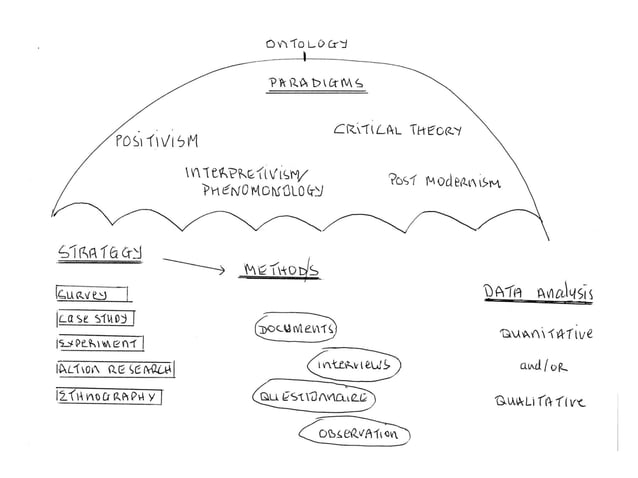 ONTOLOGY
PARADIGMS
CRITICAL THEORY
POSITIVISM
INTERPRETIVISM/
PHENOMONOLOGY
POST MODERNISM
STRATEGY
METHODS
DATA ANALYSIS
SURVEY
CASE STUDY
EXPERIMENT
ACTION RESEARCH
ETHNOGRAPHY
DOCUMENTS
INTERVIEWS
QUESTIONNAIRE
OBSERVATION
QUANITATIVE
and/OR
QUALITATIVE